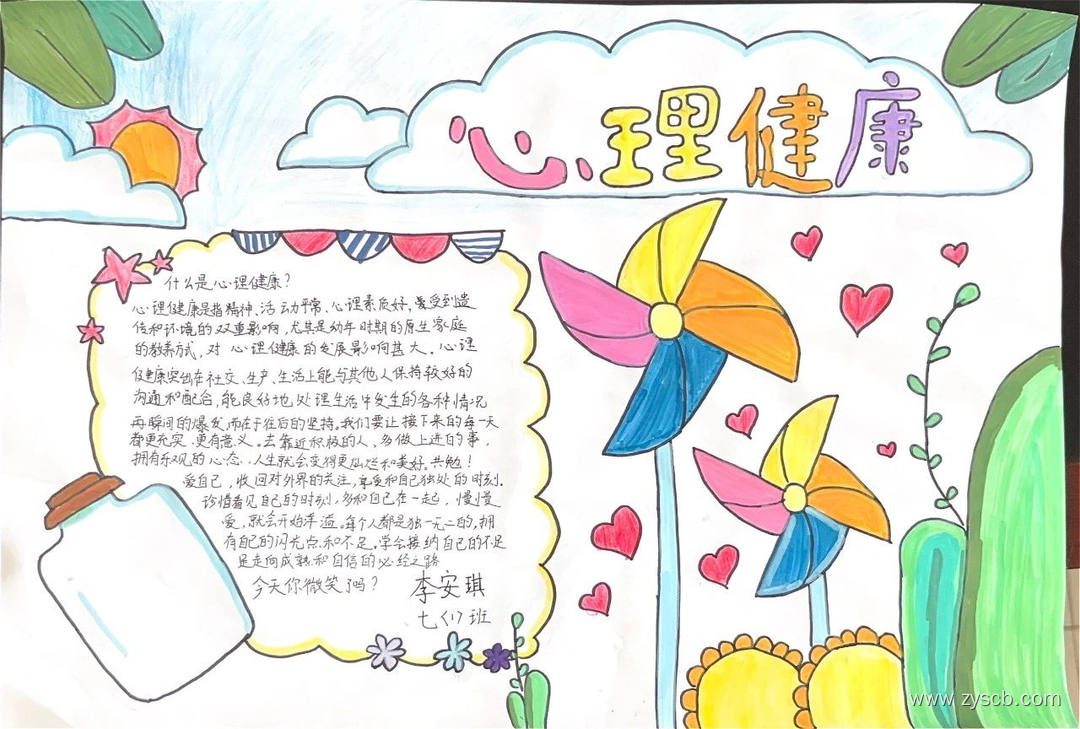 心理健康
什么是心理健康?
心理健康是指精神、活动平常、心理素质好,最受到遗
传和环境的双重影响,尤其是幼年时期的原生家庭
的教养方式,对心理健康的发展影响甚大。心理
健康突出在社交、生产、生活上能与其他人保持较好的
沟通和配合,能良好地处理生活中发生的各种情况
再瞬间的爆发,而在于往后的坚持。我们要让接下来的每一天
都更充实,更有意义。去靠近积极的人、多做上进的事,
拥有乐观的心态,人生就会变得更灿烂和美好。共勉!
爱自己,收回对外界的关注,享受和自己独处的时刻。
珍惜看见自己的时刻,多和自己在一起,慢慢
爱,就会开始洋溢。每个人都是独一无二的,拥
有自己的闪光点和不足。学会接纳自己的不足
是走向成熟和自信的必经之路
今天你微笑了吗?
李安琪
七〈1〉班
www.zyscb.com